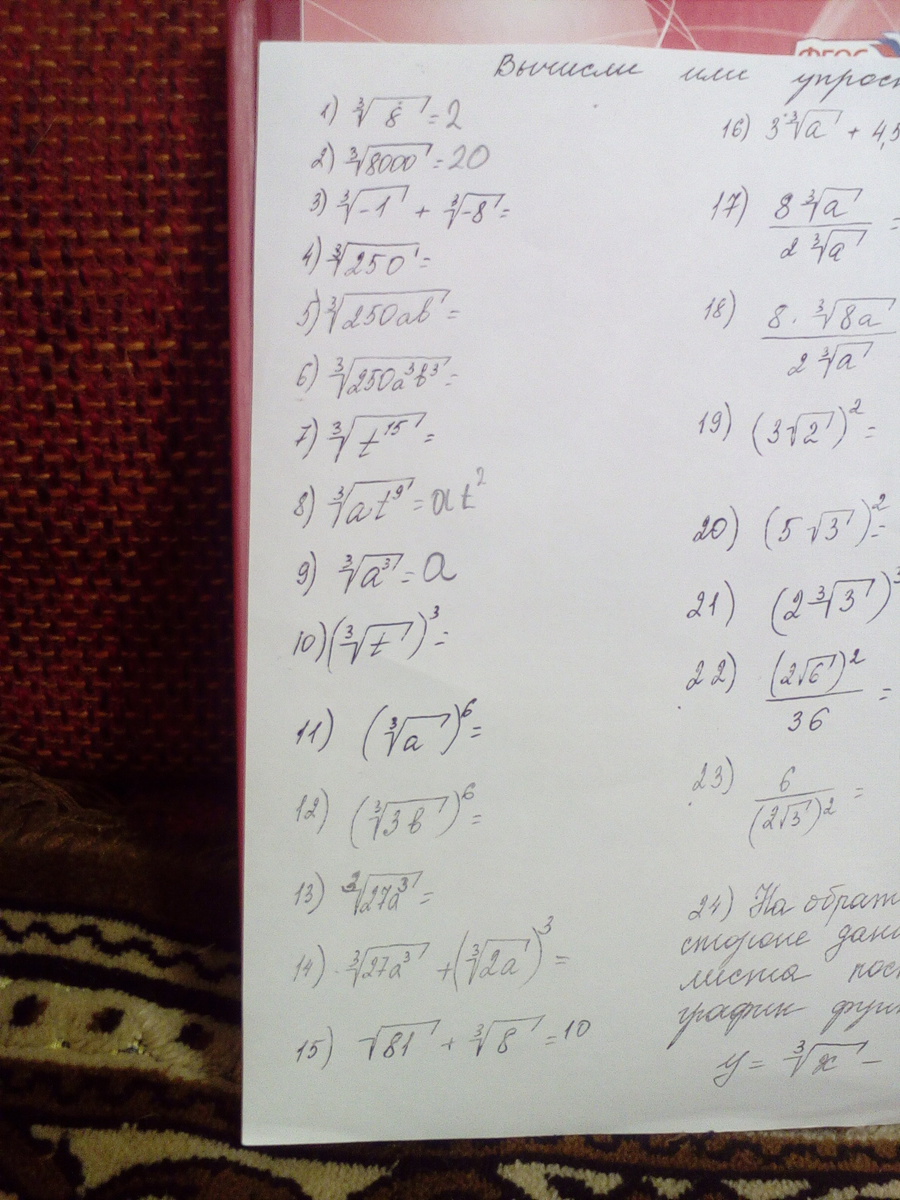 ФГОС
Вычисли или упрос
1) ∛8 = 2
2) ∛8000 = 20
3) ∛-1 + ∛-8 =
4) ∛250 =
5) ∛250ab =
6) ∛250a³b³ =
7) ∛t¹⁵ =
8) ∛at⁹ = at²
9) ∛a³ = a
10) (∛t)³ =
11) (∛a)⁶ =
12) (∛3b)⁶ =
13) ∛27a³ =
14) ∛27a³ + (∛2a)³ =
15) √81 + ∛8 = 10
16) 3·∛a + 4,5
17) 8∛a / 2∛a =
18) 8·∛8a / 2∛a
19) (3√2)² =
20) (5√3)² =
21) (2∛3)³
22) (2√6)² / 36 =
23) 6 / (2√3)² =
24) На обрат
стороне данн
листа пос
график фун
y = ∛x –